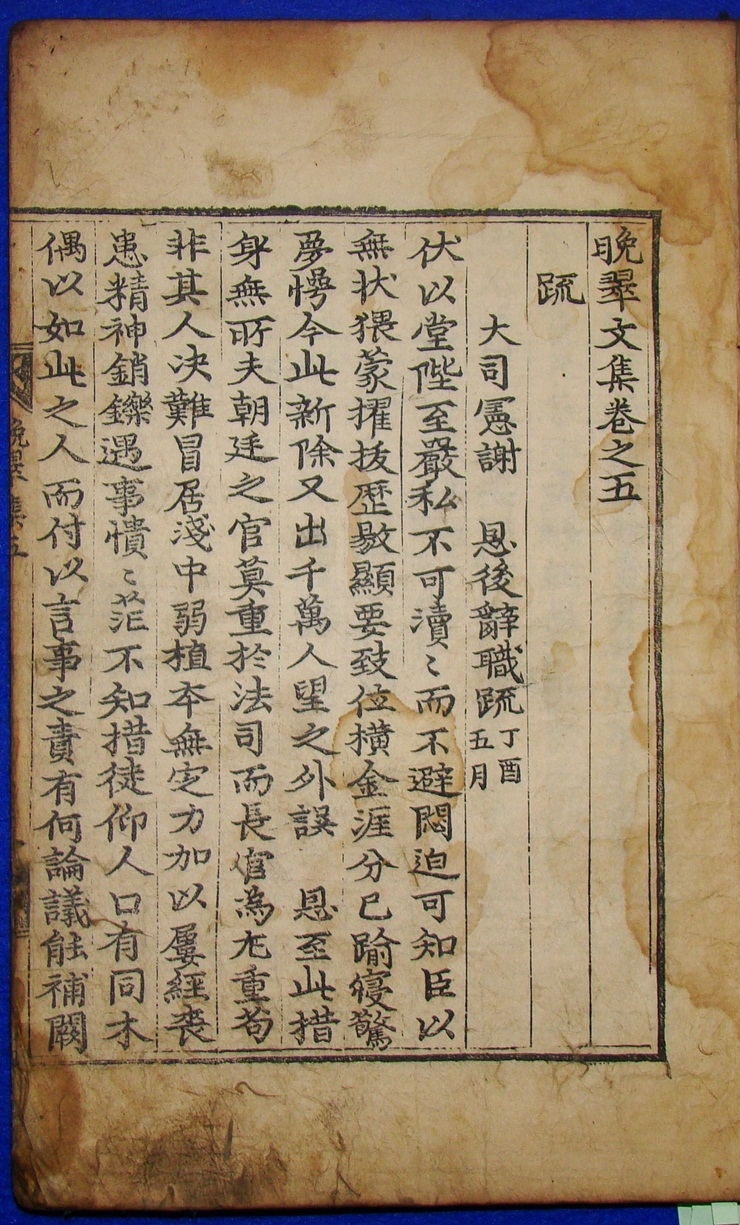 晩翠文集卷之五
疏
大司憲謝 恩後辭職疏 丁酉五月
伏以堂陛至嚴私不可瀆〻而不避悶迫可知臣以
無状猥蒙擢拔歷敭顯要致位橫金涯分已踰寑驚
夢愕今此新除又出千萬人望之外誤 恩至此措
身無所夫朝廷之官莫重於法司而長官為尤重苟
非其人决難冒居淺中弱植本無定力加以屢經喪
患精神銷鑠遇事憒〻茫不知措徒仰人口有同木
偶以如此之人而付以言事之責有何論議能補闕
晩翠集五